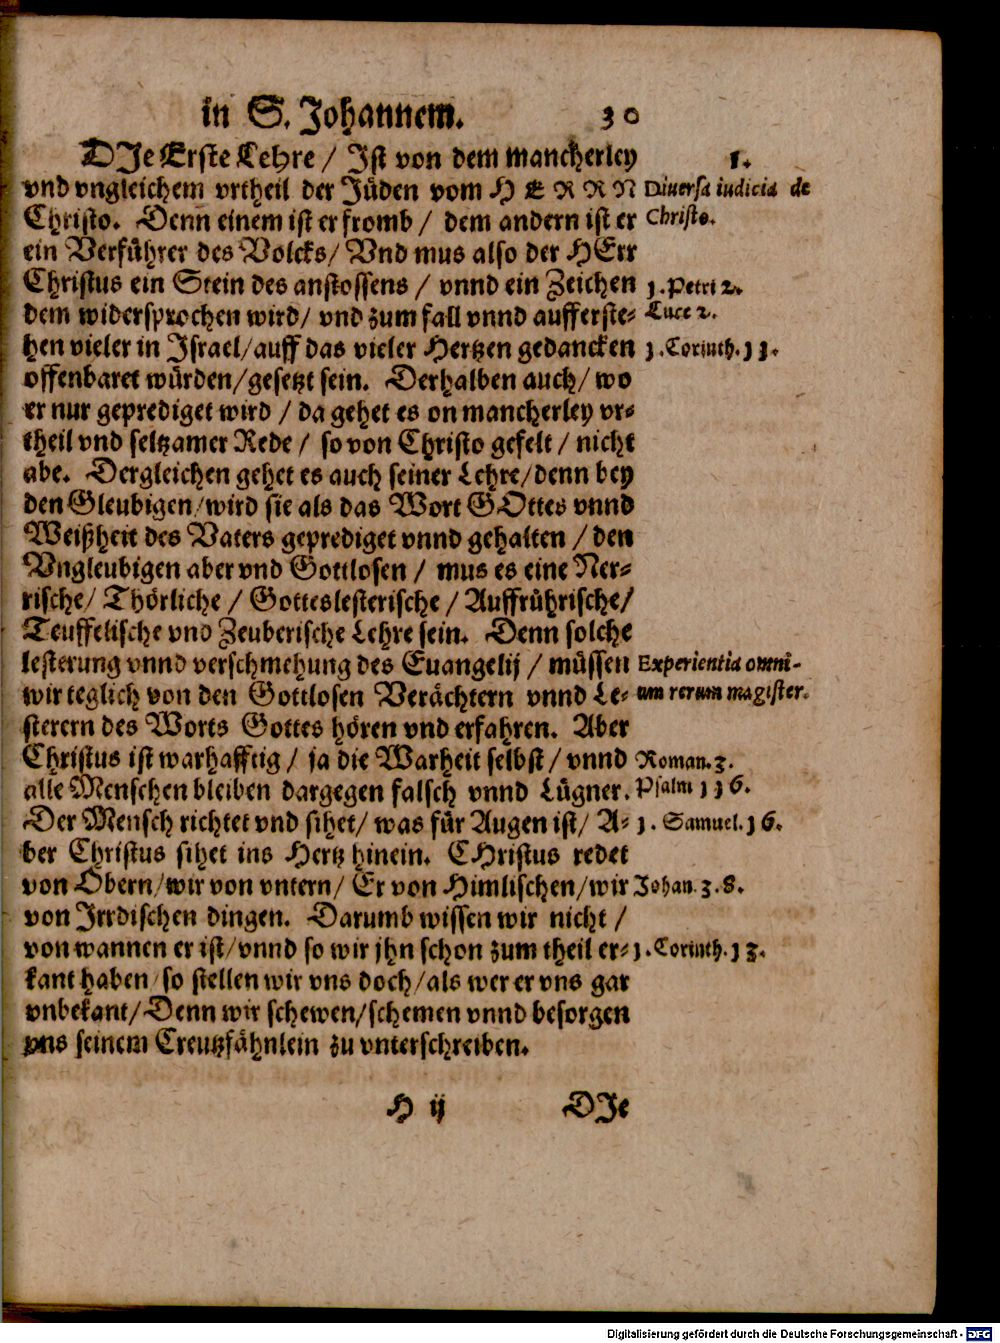 in S. Johannem. 30
DJe Erste Lehre / Jst von dem mancherley
1.
vnd vngleichem vrtheil der Jüden vom HERRN
Diuersa iudicia de
Christo. Denn einem ist er fromb / dem andern ist er
Christo.
ein Verführer des Volcks / Vnd mus also der HErr
Christus ein Stein des anstossens / vnnd ein Zeichen
1. Petri 2.
dem widersprochen wird / vnd zum fall vnnd aufferste-
Luce 2.
hen vieler in Jsrael / auff das vieler Hertzen gedancken
1. Corinth. 11.
offenbaret würden / gesetzt sein. Derhalben auch / wo
er nur geprediget wird / da gehet es on mancherley vr-
theil vnd seltzamer Rede / so von Christo gefelt / nicht
abe. Dergleichen gehet es auch seiner Lehre / denn bey
den Gleubigen / wird sie als das Wort GOttes vnnd
Weißheit des Vaters geprediget vnnd gehalten / den
Vngleubigen aber vnd Gottlosen / mus es eine Ner-
rische / Thörliche / Gotteslesterische / Auffrührische /
Teuffelische vnd Zeuberische Lehre sein. Denn solche
lesterung vnnd verschmehung des Euangelij / müssen
Experientia omni-
wir teglich von den Gottlosen Verächtern vnnd Le-
um rerum magister.
sterern des Worts Gottes hören vnd erfahren. Aber
Christus ist warhafftig / ja die Warheit selbst / vnnd
Roman. 3.
alle Menschen bleiben dargegen falsch vnnd Lügner.
Psalm 116.
Der Mensch richtet vnd sihet / was für Augen ist / A-
1. Samuel. 16.
ber Christus sihet ins Hertz hinein. CHristus redet
von Obern / wir von vntern / Er von Himlischen / wir
Johan. 3. 8.
von Jrrdischen dingen. Darumb wissen wir nicht /
von wannen er ist / vnnd so wir jhn schon zum theil er-
1. Corinth. 13.
kant haben / so stellen wir vns doch / als wer er vns gar
vnbekant / Denn wir schewen / schemen vnnd besorgen
vns seinem Creutzfähnlein zu vnterschreiben.
H ij DJe
Digitalisierung gefördert durch die Deutsche Forschungsgemeinschaft - DFG